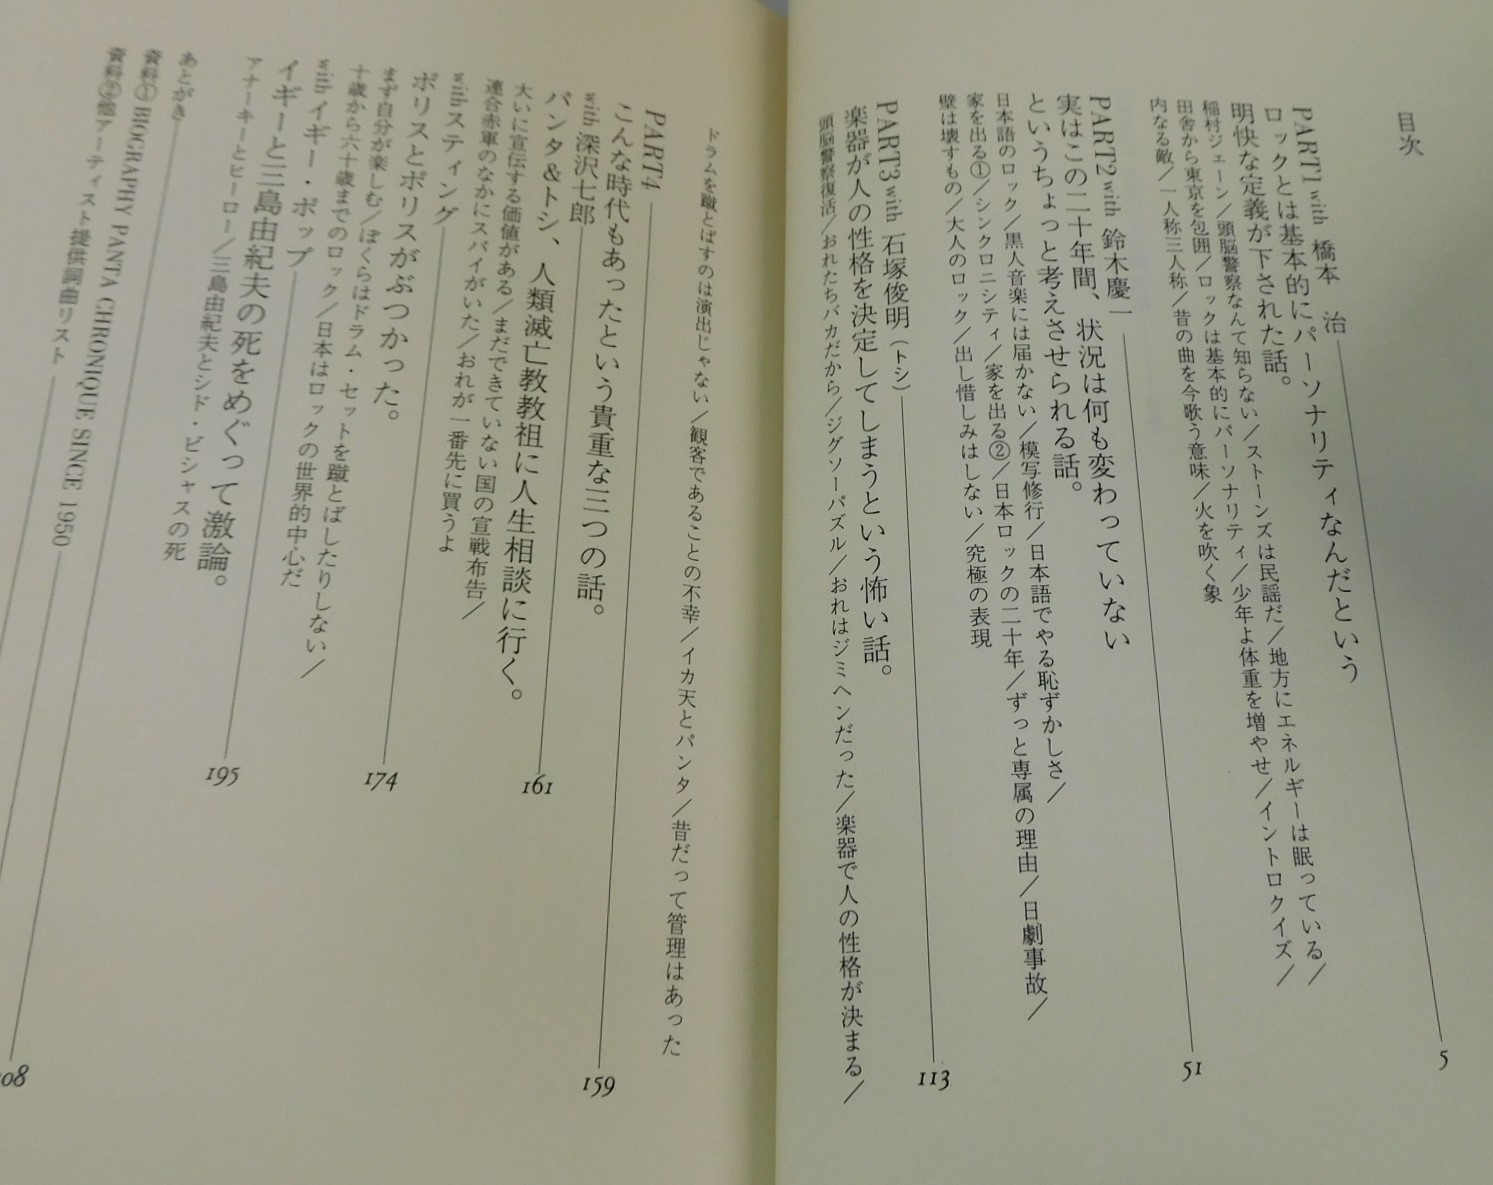 目次
PART1 with 橋本 治
5
ロックとは基本的にパーソナリティなんだという
明快な定義が下された話。
稲村ジェーン／頭脳警察なんて知らない／ストーンズは民謡だ／地方にエネルギーは眠っている／
田舎から東京を包囲／ロックは基本的にパーソナリティ／少年よ体重を増やせ／イントロクイズ／
内なる敵／一人称三人称／昔の曲を今歌う意味／火を吹く象
PART2 with 鈴木慶一
51
実はこの二十年間、状況は何も変わっていない
というちょっと考えさせられる話。
日本語のロック／黒人音楽には届かない／模写修行／日本語でやる恥ずかしさ／
家を出る①／シンクロニシティ／家を出る②／日本ロックの二十年／ずっと専属の理由／日劇事故／
壁は壊すもの／大人のロック／出し惜しみはしない／究極の表現
PART3 with 石塚俊明（トシ）
113
楽器が人の性格を決定してしまうという怖い話。
頭脳警察復活／おれたちバカだから／ジグソーパズル／おれはジミヘンだった／楽器で人の性格が決まる／
ドラムを蹴とばすのは演出じゃない／観客であることの不幸／イカ天とパンタ／昔だって管理はあった
PART4
159
こんな時代もあったという貴重な三つの話。
with 深沢七郎
161
パンタ＆トシ、人類滅亡教教祖に人生相談に行く。
大いに宣伝する価値がある／まだできていない国の宣戦布告／
連合赤軍のなかにスパイがいた／おれが一番先に買うよ
with スティング
174
ポリスとポリスがぶつかった。
まず自分が楽しむ／ぼくらはドラム・セットを蹴とばしたりしない／
十歳から六十歳までのロック／日本はロックの世界的中心だ
with イギー・ポップ
195
イギーと三島由紀夫の死をめぐって激論。
アナーキーとヒーロー／三島由紀夫とシド・ビシャスの死
あとがき
208
資料① BIOGRAPHY PANTA CHRONIQUE SINCE 1950
資料②他アーティスト提供詞曲リスト